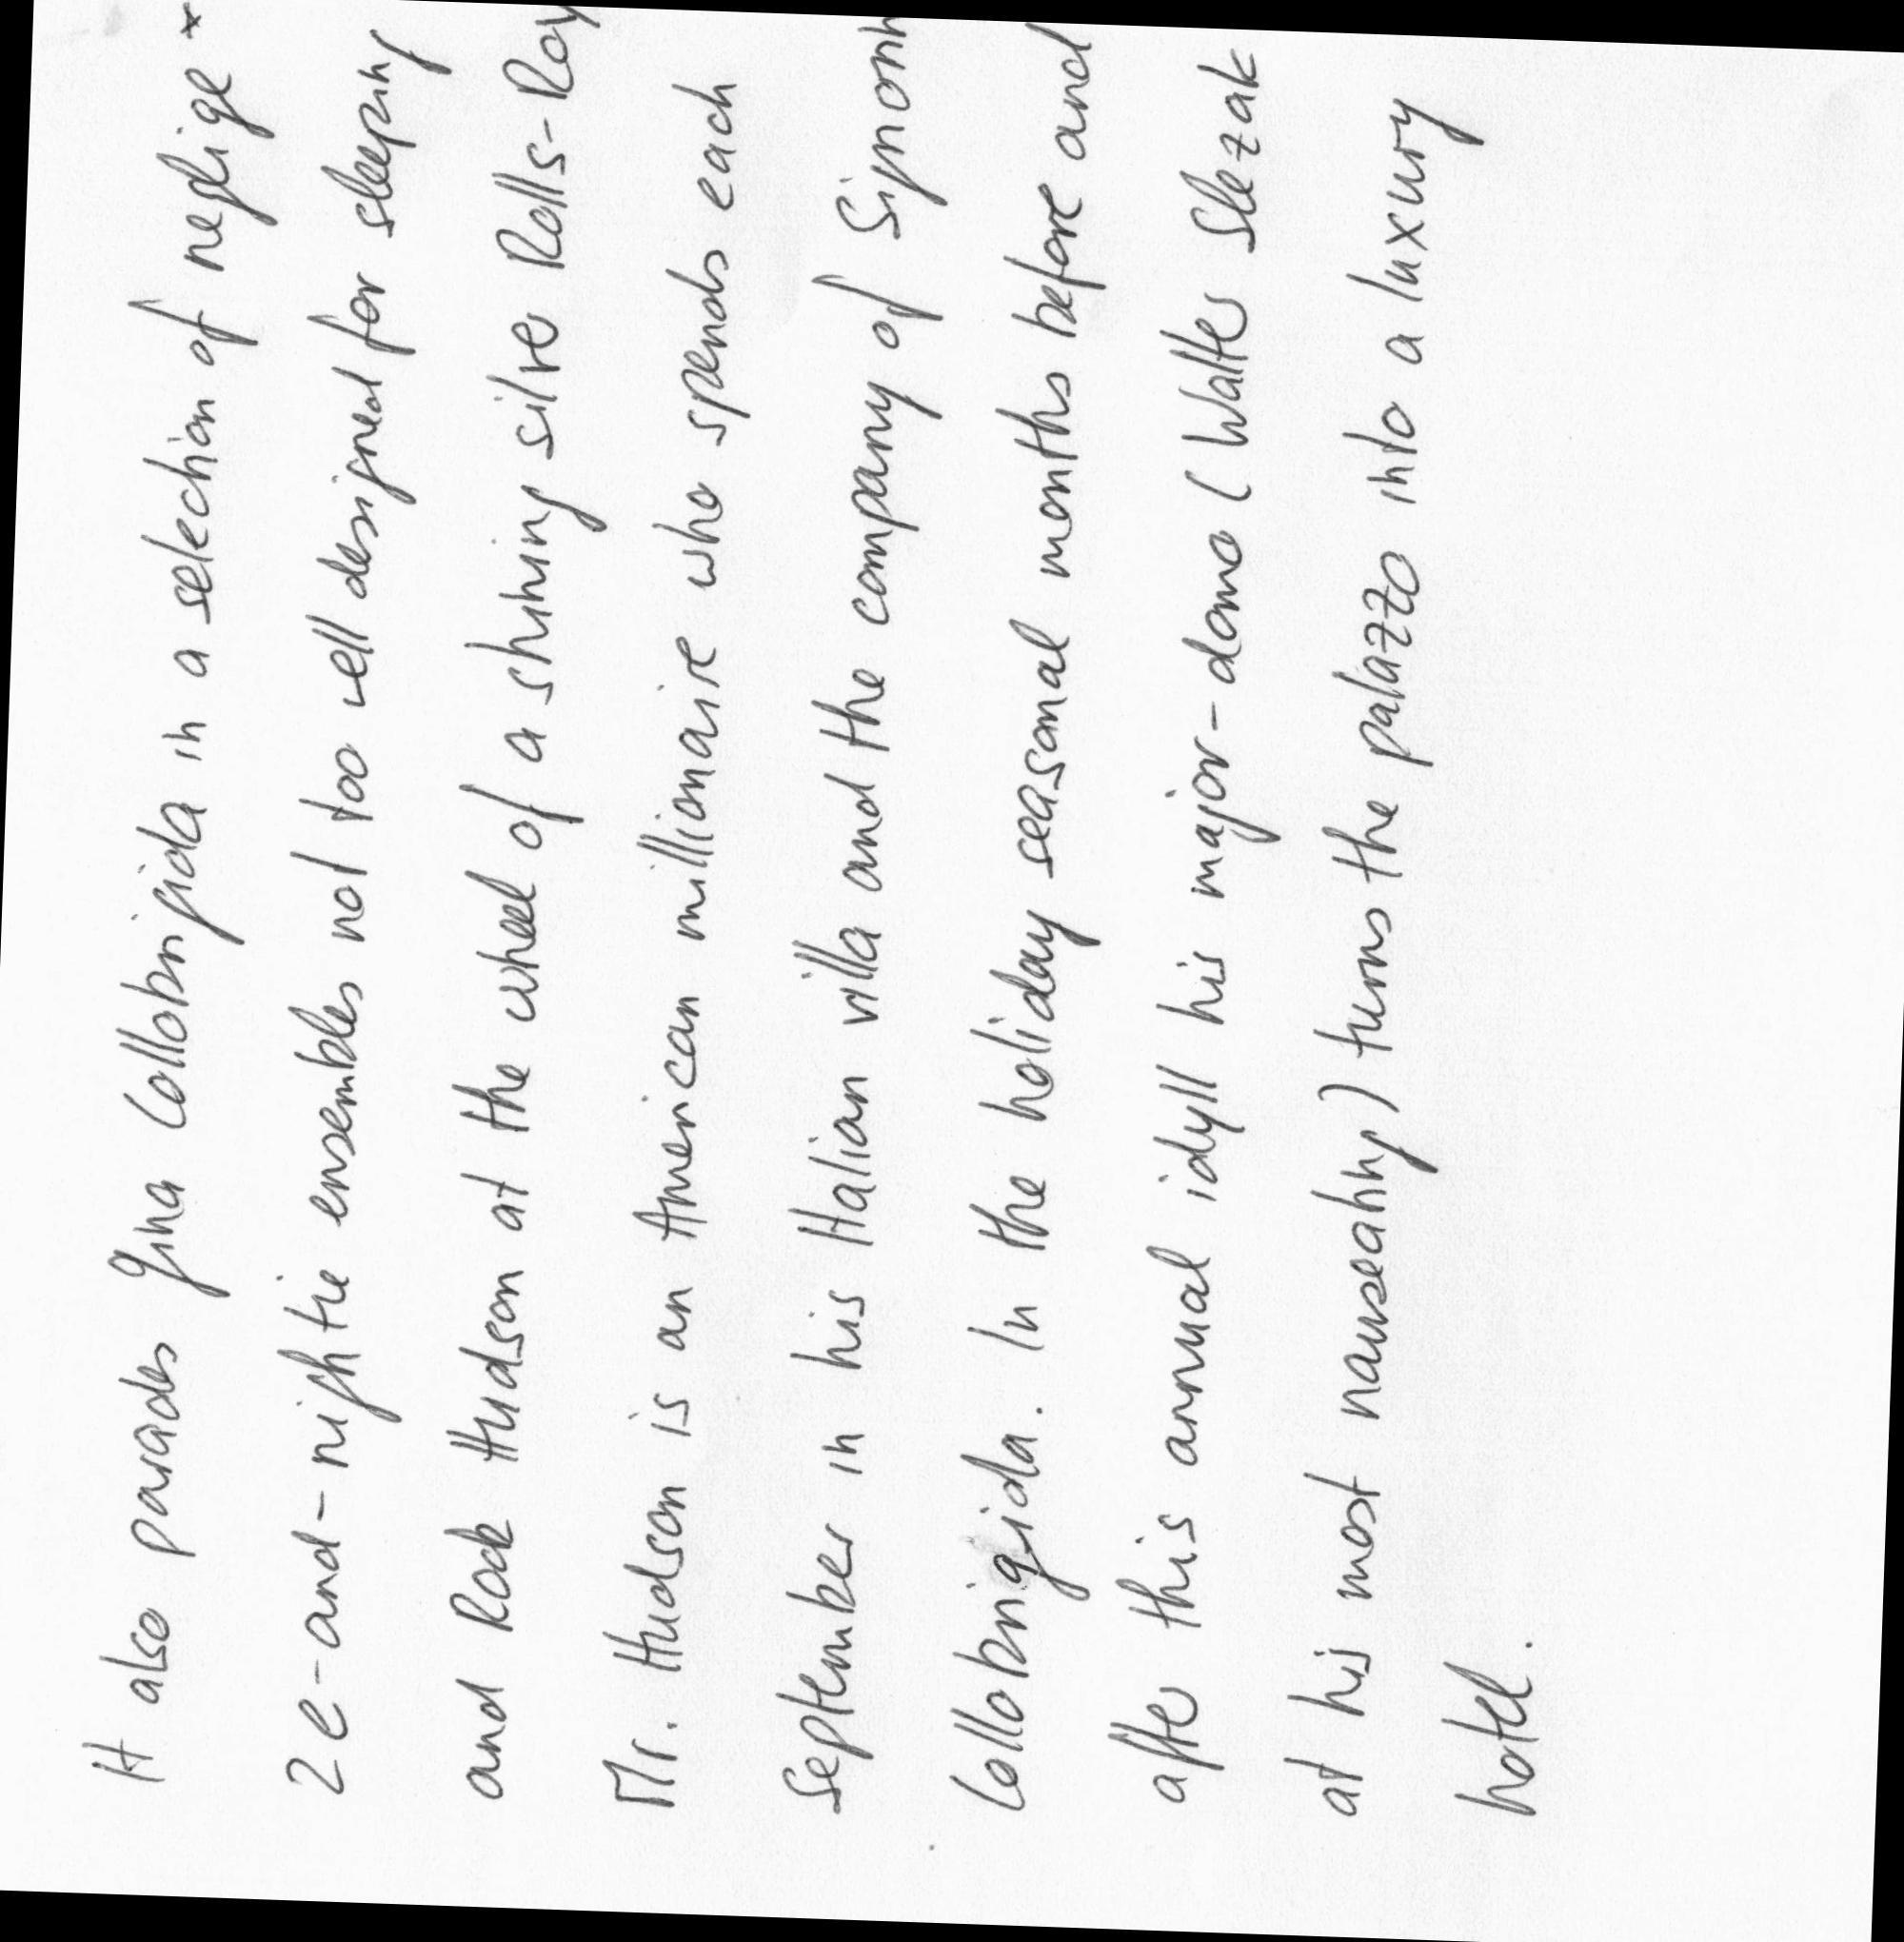 It also parades Gina Lollobrigida in a selection of neglige
2e-and-nightie ensembles not too well designed for sleeping
and Rock Hudson at the wheel of a shining silve Rolls-Roy
Mr. Hudson is an American millionaire who spends each
September in his Italian villa and the company of
Lollobrigida. In the holiday seasonal months before and
after this annual idyll his major-domo (Walter Slezak
at his most nauseating) turns the palazzo into a luxury
hotel.